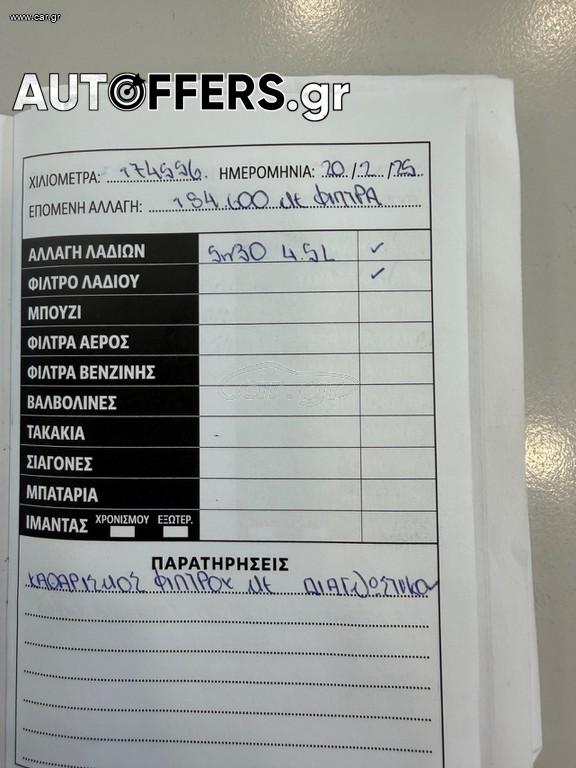 www.car.gr
AUTOFFERS.gr
ΧΙΛΙΟΜΕΤΡΑ: 174556. ΗΜΕΡΟΜΗΝΙΑ: 20/2/25
ΕΠΟΜΕΝΗ ΑΛΛΑΓΗ: 184.600 ΜΕ ΦΙΛΤΡΑ
ΑΛΛΑΓΗ ΛΑΔΙΩΝ 5w30 4.5L ✓
ΦΙΛΤΡΟ ΛΑΔΙΟΥ ✓
ΜΠΟΥΖΙ
ΦΙΛΤΡΑ ΑΕΡΟΣ
ΦΙΛΤΡΑ ΒΕΝΖΙΝΗΣ
car.gr
ΒΑΛΒΟΛΙΝΕΣ
ΤΑΚΑΚΙΑ
ΣΙΑΓΟΝΕΣ
ΜΠΑΤΑΡΙΑ
ΙΜΑΝΤΑΣ ΧΡΟΝΙΣΜΟΥ ΕΞΩΤΕΡ.
ΠΑΡΑΤΗΡΗΣΕΙΣ
ΚΑΘΑΡΙΣΜΟΣ ΦΙΛΤΡΟΥ ΜΕ ΔΙΑΓΝΩΣΤΙΚΟ